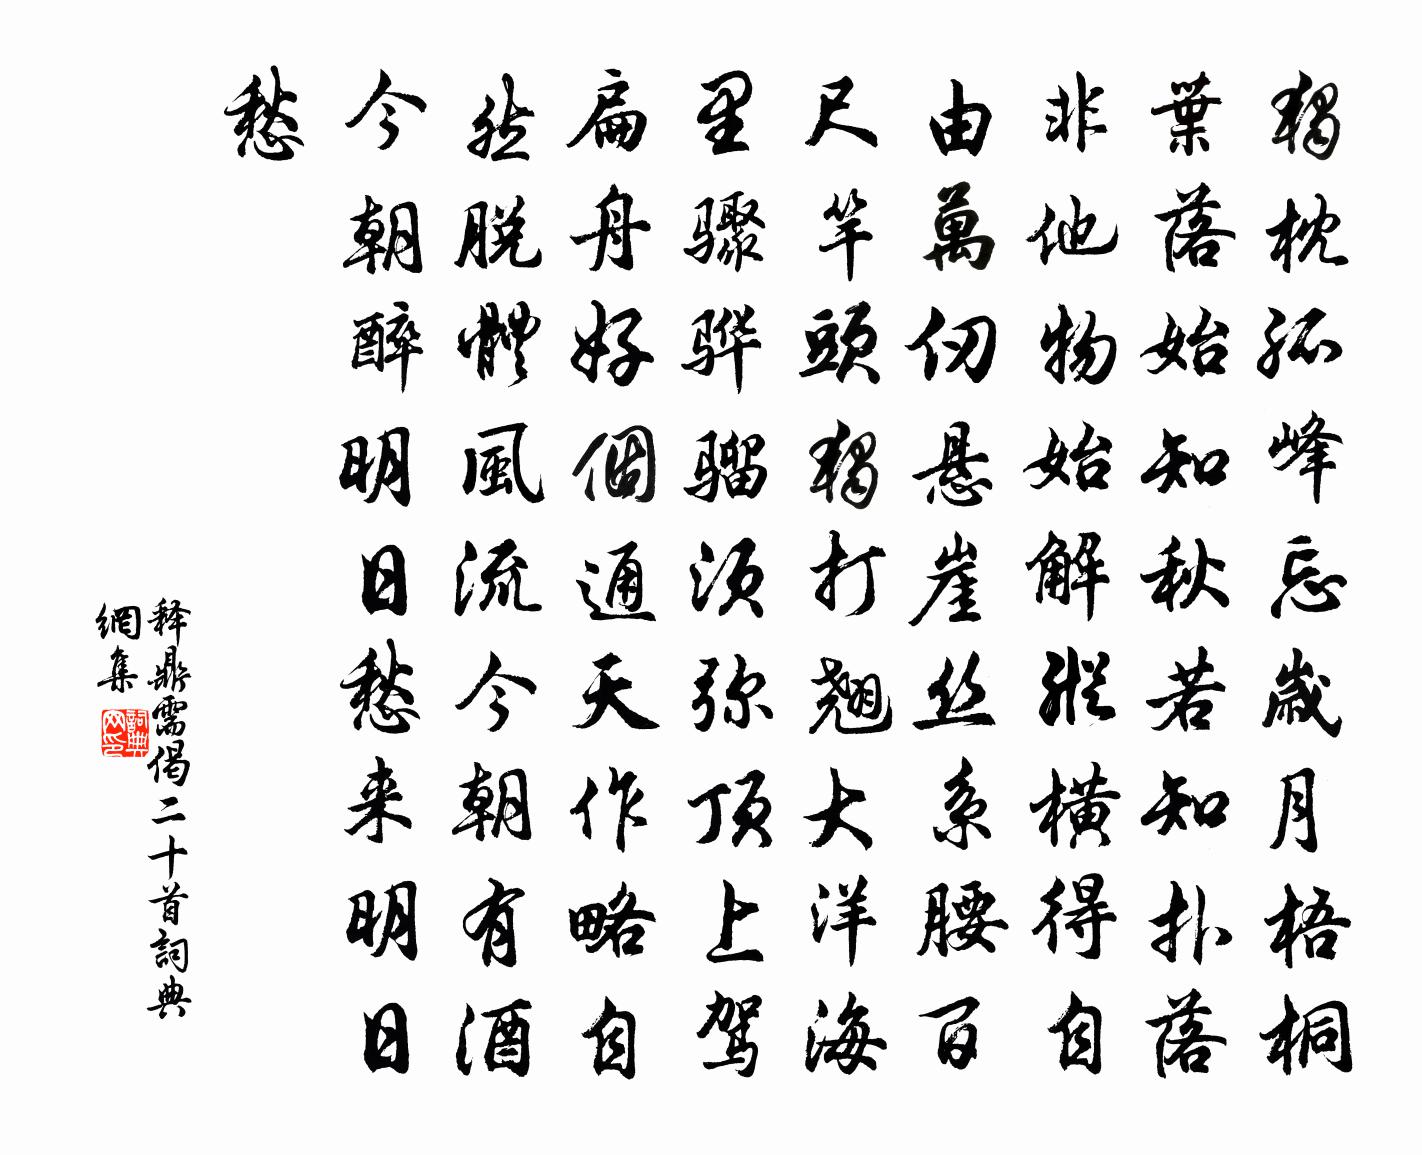 獨枕孤峰忘歲月梧桐
葉落始知秋若知扑落
非他物始解縱橫得自
由萬仞悬崖丝系腰百
尺竿頭獨打翘大洋海
里骤骅骝须弥顶上驾
扁舟好個通天作略自
然脱體風流今朝有酒
今朝醉明日愁来明日
愁
释鼎需偈二十首詞典
網集
詞典
网印